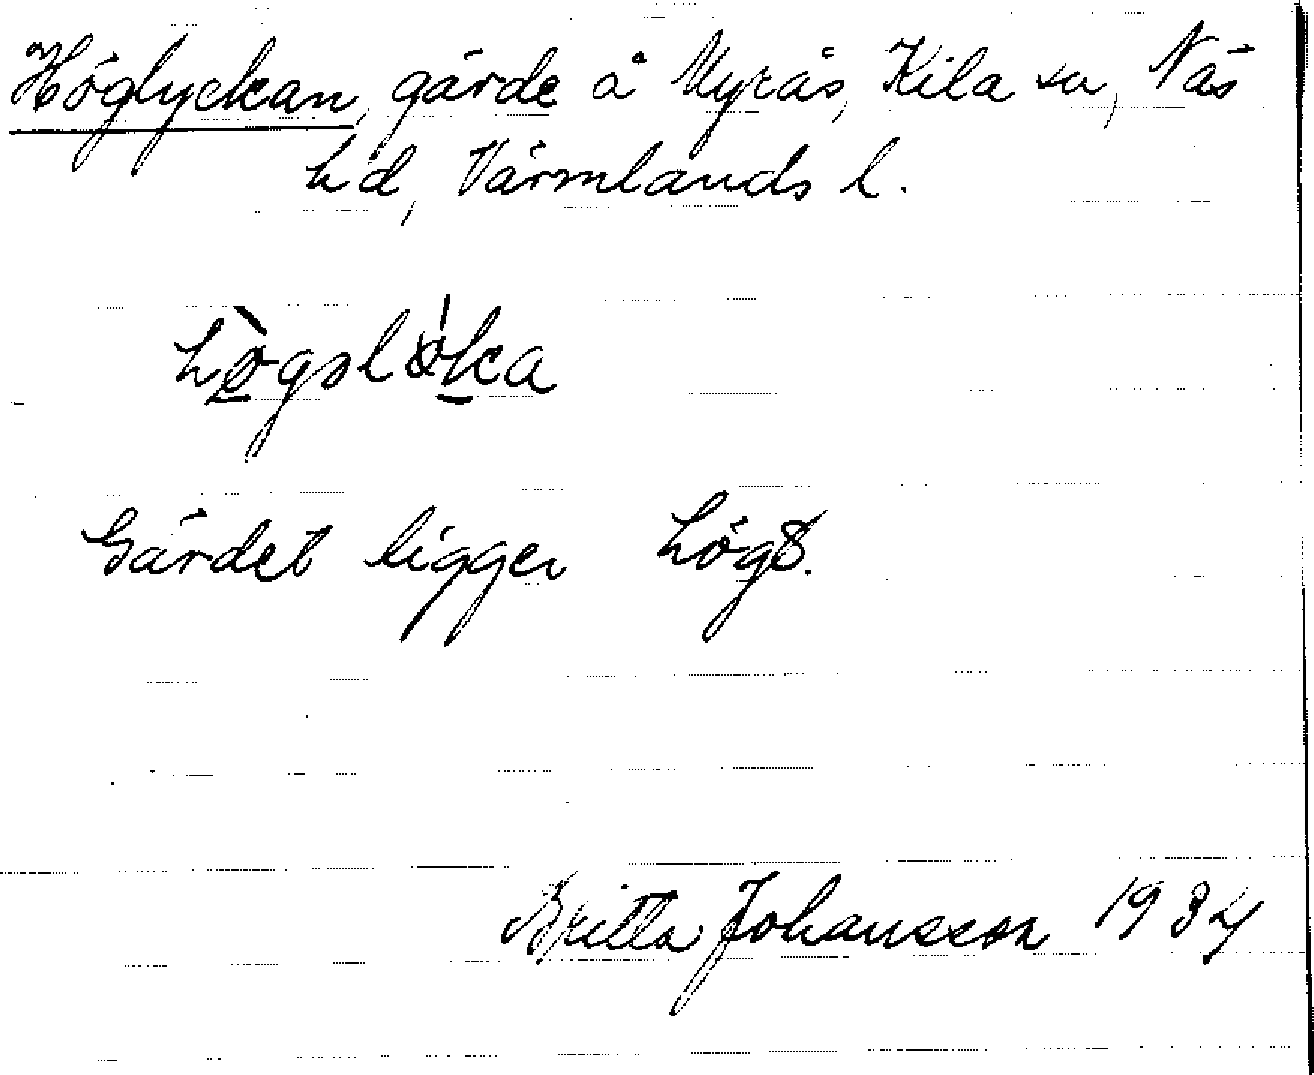 Höglyckan, gärde å Myrås, Kila sn, Näs
hd, Värmlands l.
hø̀gslø̍ka
Gärdet ligger högt.
Britta Johansson 1934